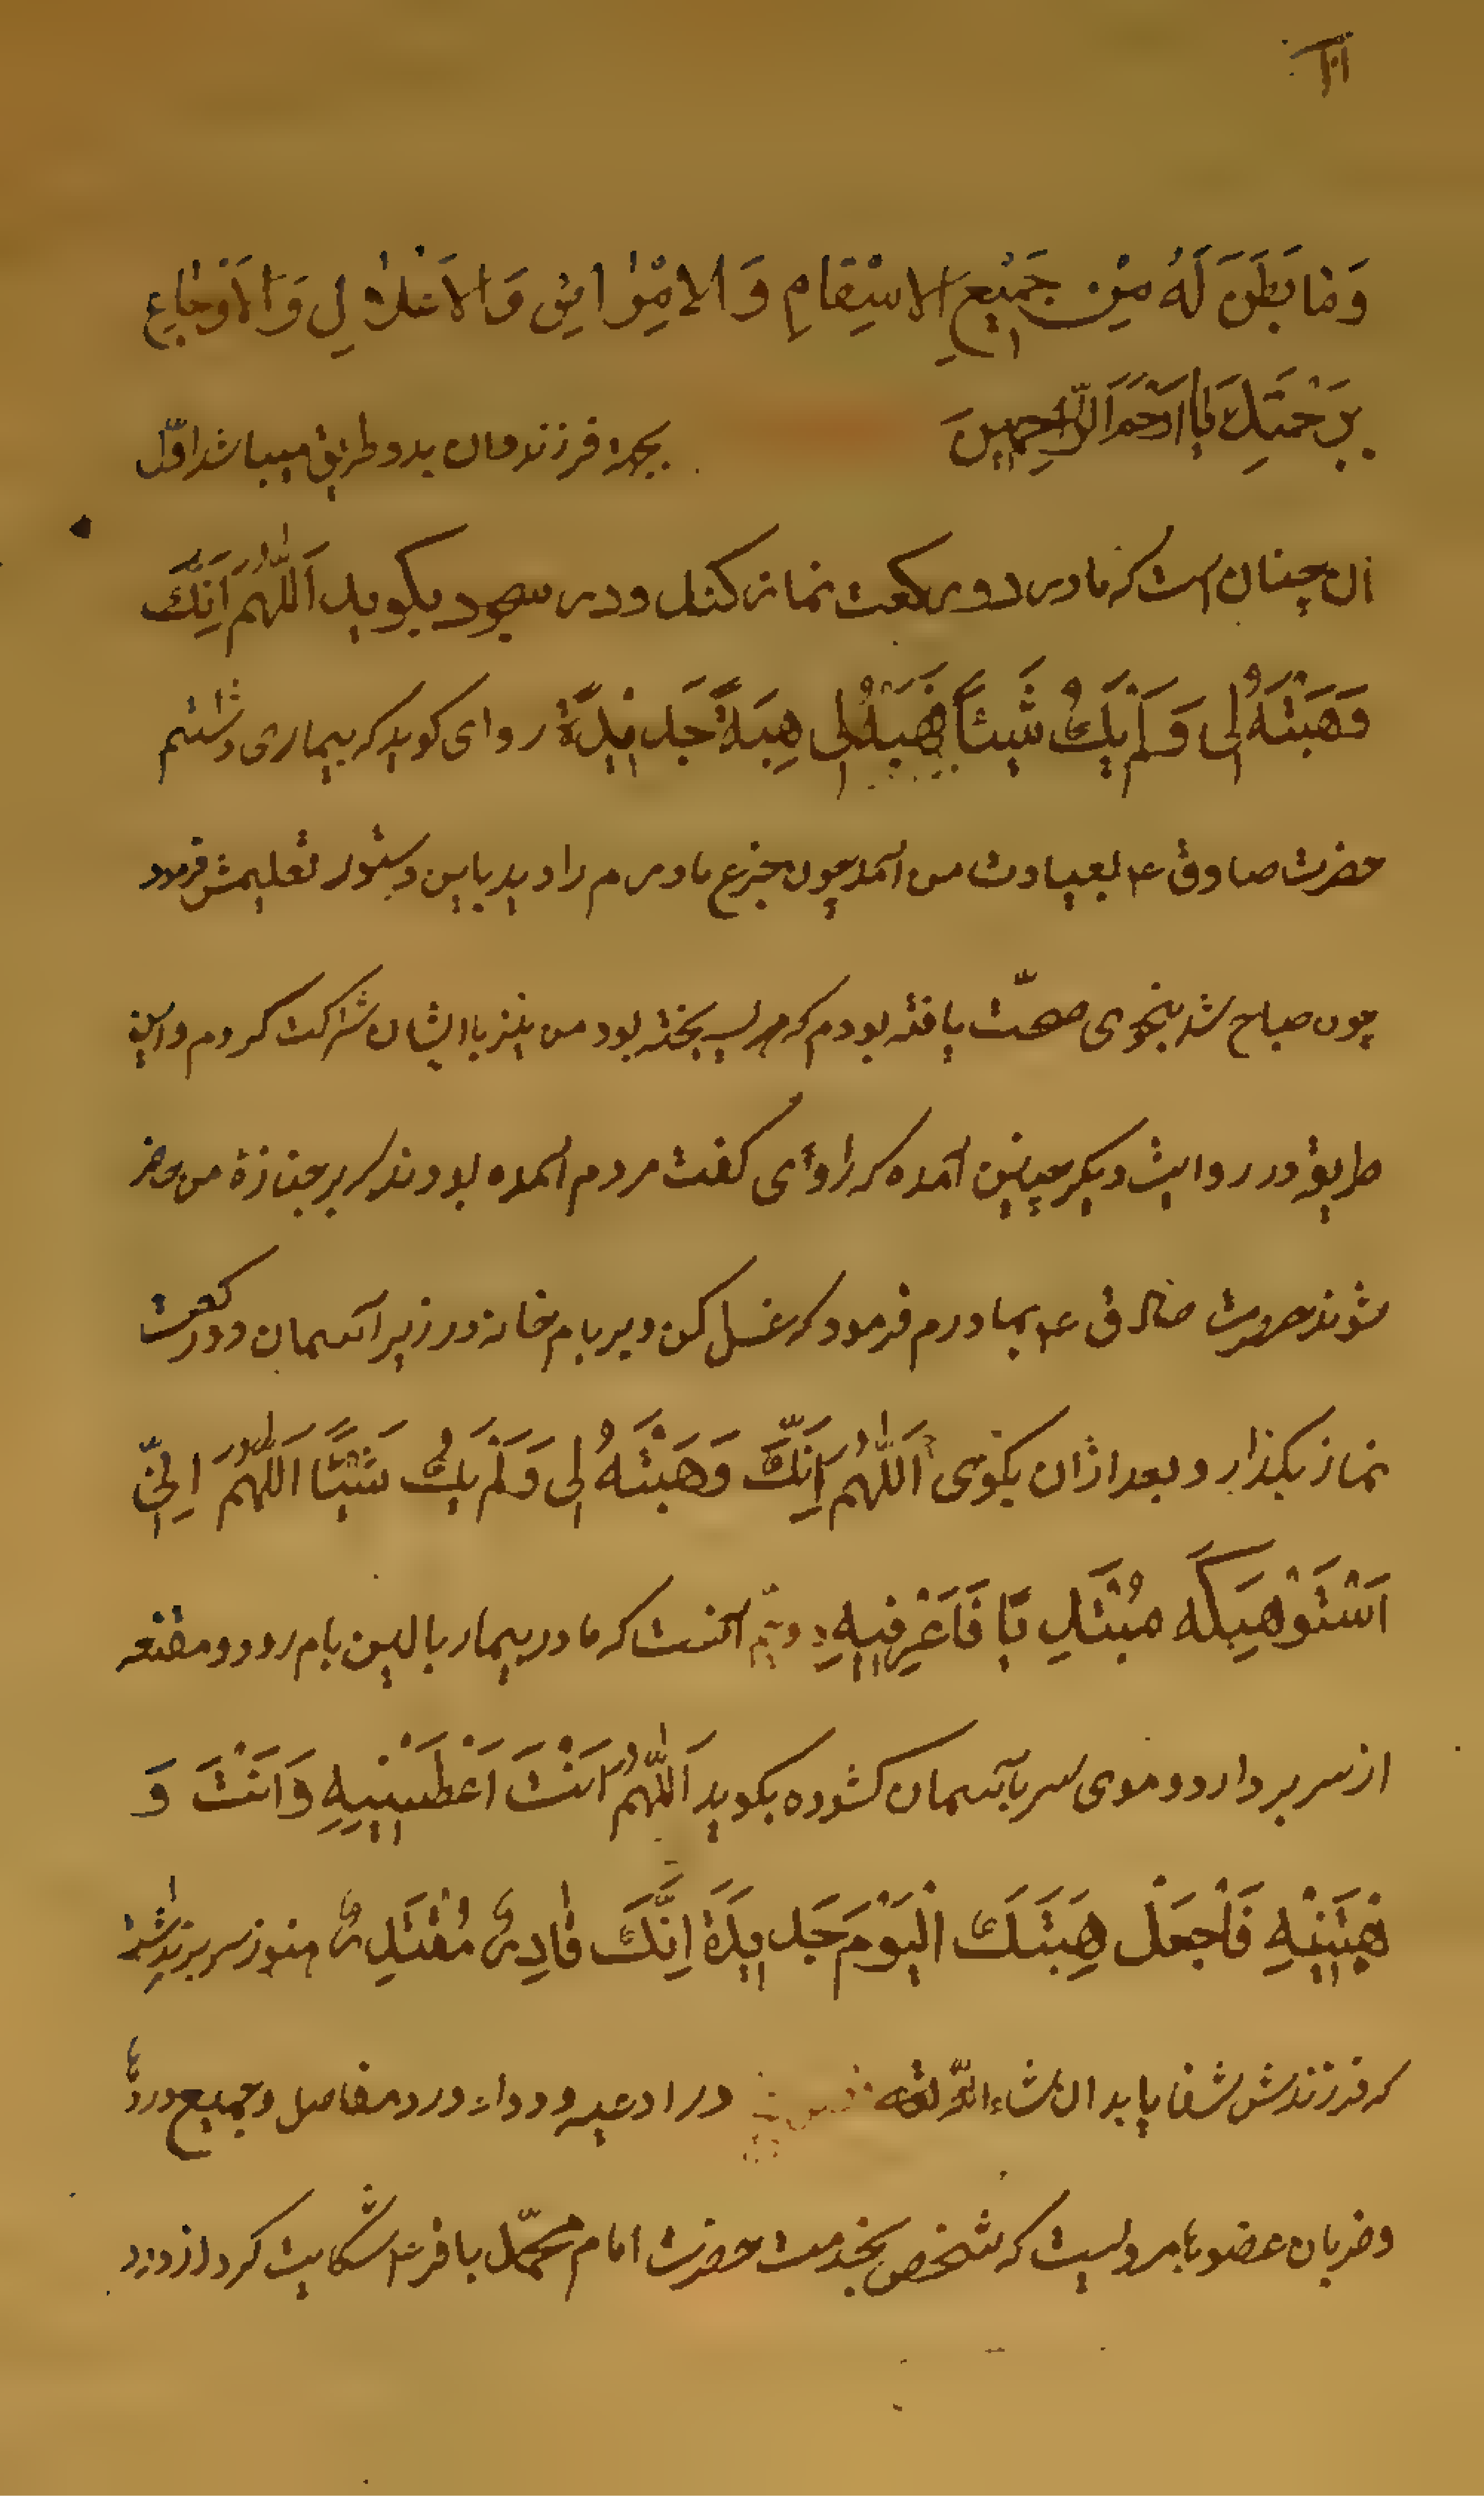 وَمٰا بَطَنَ لَهُ مِنْ جَمِيْعِ الاسْقامِ وَالامْراضِ وَالاعْلالِ وَالاَوْجٰاعِ
بِرَحْمَتِكَ يٰا اَرْحَمَ الرّٰاحِمِينَ بجهة فرزندمان بدو طريق ميباشد اوّل
آن چنان است كه مادر دو ركعت نماز كند و در سجود بگويد اَللّٰهُمَّ اَنَّكَ
وَهَبْتَهُ لى وَلَمْ يَكُ شَيئاً فَهَبْهُ لى هِبَةً جَديدَةً راوى گويد كه بيمارى داشتم
حضرت صادق ع بعيادت من آمد چون جزع مادرم را ديد باين دستور تعليمش فرمود
چون صباح شد بنحوى صحّت يافته بودم كه هريسه پخته بود من نيز با ايشان شراكت كردم و اين
طريق در روايت ديگر چنين آمده كه راوى گفت مردم آمده بودند كه بر جنازهٔ من حاضر
شوند حضرت صادق ع بمادرم فرمود كه غسل كن و بر بام خانه در زير آسمان دو ركعت
نماز بگذار و بعد از آن بگوى اَللّٰهُمَّ اَنَّكَ وَهَبْتَهُ لى وَلَمْ يَكُ شَيْئًا اَللّٰهُمَّ اِنّى
اَسْتَوْهِبُكَهُ مُبْتَدِيًا فَاَعِرْنيهِ دويّم آنست كه مادر بيمار ببالين بام رود و مقنعه
از سر بردارد و موى سر بآسمان گشوده بگويد اَللّٰهُمَّ اَنْتَ اَعْطَيْتَنيهِ وَاَنْتَ وَ
هَبْتَنيهِ فَاجْعَلْ هِبَتَكَ الْيَوْمَ جَديدَةً اِنَّكَ قٰادِرٌ مُقْتَدِرٌ هنوز سر بر نداشته
كه فرزندش شفا يابد ان شاء الله تعالى در ادعيه و دواء درد مفاصل و جميع دردها
و ضربان عضوها مرويست كه شخصى بخدمت حضرت امام محمّد باقر ع شكايت كرد از درد